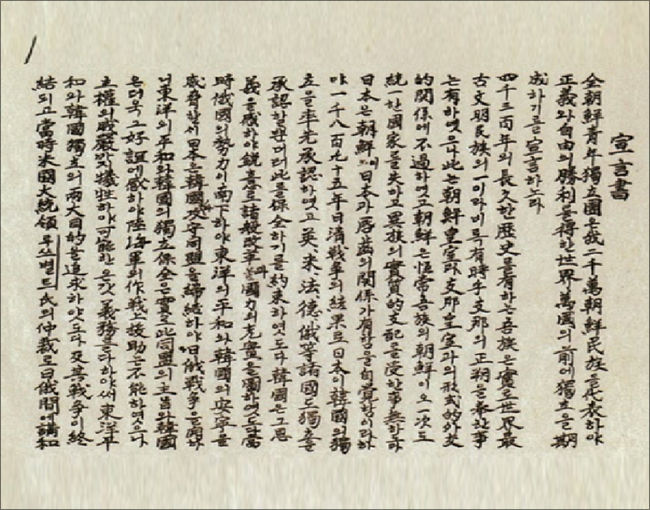 宣言書
全朝鮮青年獨立團은我二千萬朝鮮民族을代表하야
正義와自由의勝利를得한世界萬國의前에獨立을期
成하기를宣言하노라
四千三百年의長久한歷史를有하는吾族은實로世界最
古文明民族의一이라비록有時乎支那의正朔을奉한事
는有하엿으나此는朝鮮皇室과支那皇室과의形式的外交
的關係에不過하엿고朝鮮은恒常吾族의朝鮮이오一次도
統一한國家를失하고異族의實質的支配를受한事無하도다
日本은朝鮮이日本과唇齒의關係가有함을自覺함이라하
야一千八百九十五年日淸戰爭의結果로日本이韓國의獨
立을率先承認하엿고英、米、法、德、俄等諸國도獨立을
承認할뿐더러此를保全하기를約束하엿도다韓國은그恩
義를感하야銳意로諸般改革과國力의充實을圖하엿도다當
時俄國의勢力이南下하야東洋의平和와韓國의安寧을
威脅할새日本은韓國과攻守同盟을締結하야日俄戰爭을開하
니東洋의平和와韓國의獨立保全은實로此同盟의主旨와韓國
은더욱그好誼에感하야陸海軍의作戰上援助는不能하엿으나
主權의威嚴까지犧牲하야可能한온갓義務를다하야써東洋平
和와韓國獨立의兩大目的을追求하얏도다及其戰爭이終
結되고當時米國大統領루쓰벨트氏의仲裁로日俄間에講和